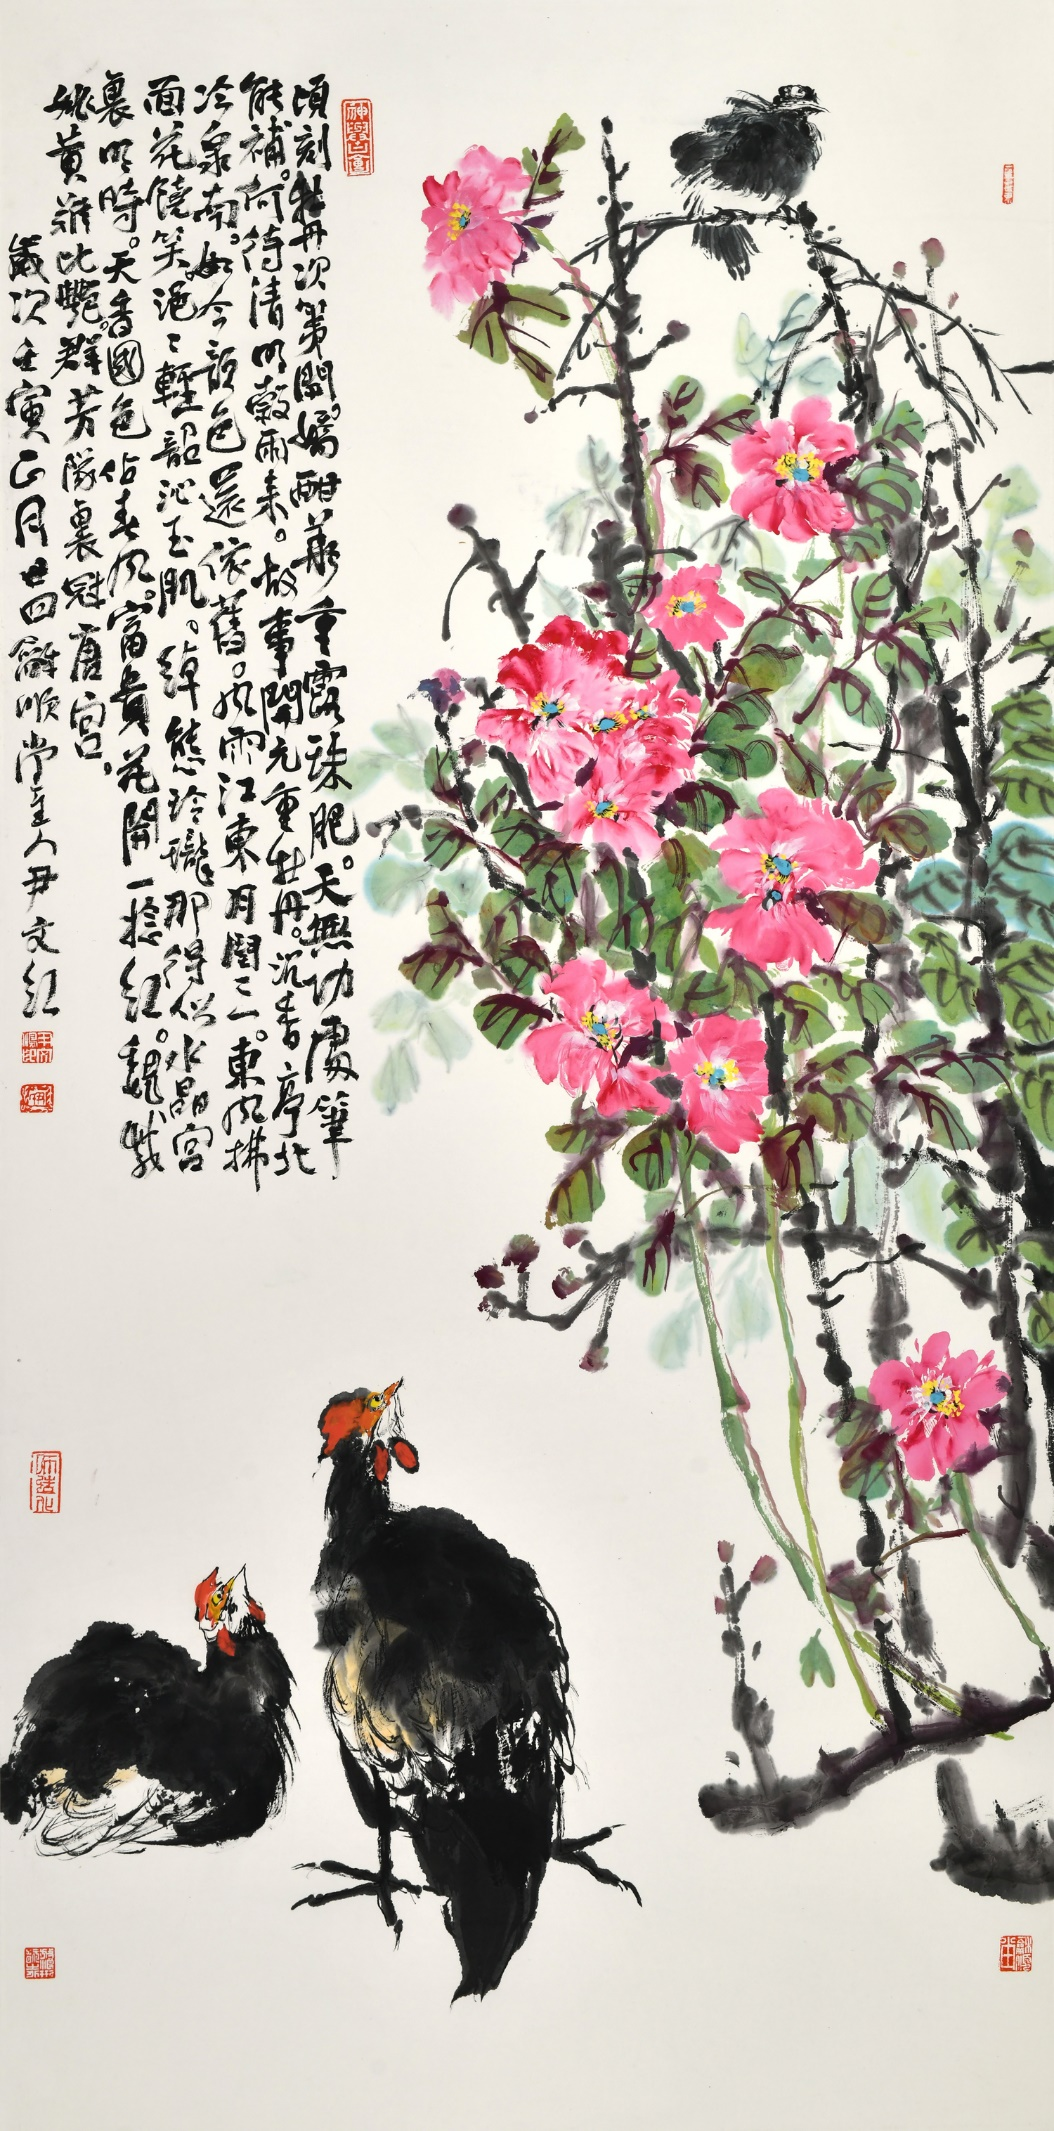 頃刻牡丹次第開。嬌酣蕚重露珠肥。天無功處筆
能補。何待清明穀雨来。故事開元重牡丹。沉香亭北
冷泉南。如今韻色還依舊。風雨江東月闌二一。東風拂
面花饒笑。浥浥輕韶沁玉肌。綽態玲瓏那得似水晶宮
裏明時。天香國色佔春风。富貴花開一捻紅。魏
姚黃難比艷。群芳隊裏冠唐宫。
歲次壬寅正月廿四龢順堂主人尹文紅